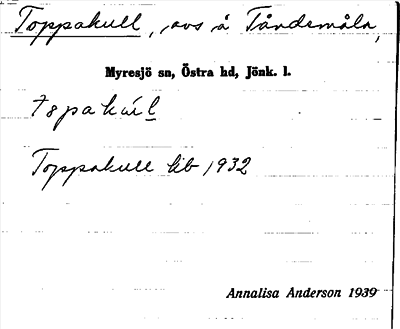 Toppakull, avs å Tåndemåla,
Myresjö sn, Östra hd, Jönk. l.
Toppakull kb 1932
Annalisa Anderson 1939